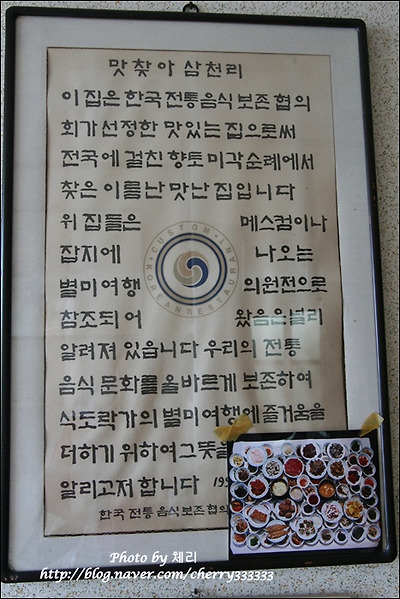 맛찾아 삼천리
이 집은 한국 전통음식 보존 협의
회가 선정한 맛있는 집으로써
전국에 걸친 향토미각 순례에서
찾은 이름난 맛난 집입니다
위 집들은 메스컴이나
잡지에 나오는
별미여행 의원전으로
참조되어 왔음은 널리
알려져 있습니다 우리의 전통
음식 문화를 올바르게 보존하여
식도락가의 별미여행에 즐거움을
더하기 위하여 그 뜻을
알리고저 합니다
한국 전통 음식 보존 협의
CUSTOM
KOREAN RESTAURANT
Photo by 체리
http://blog.naver.com/cherry333333